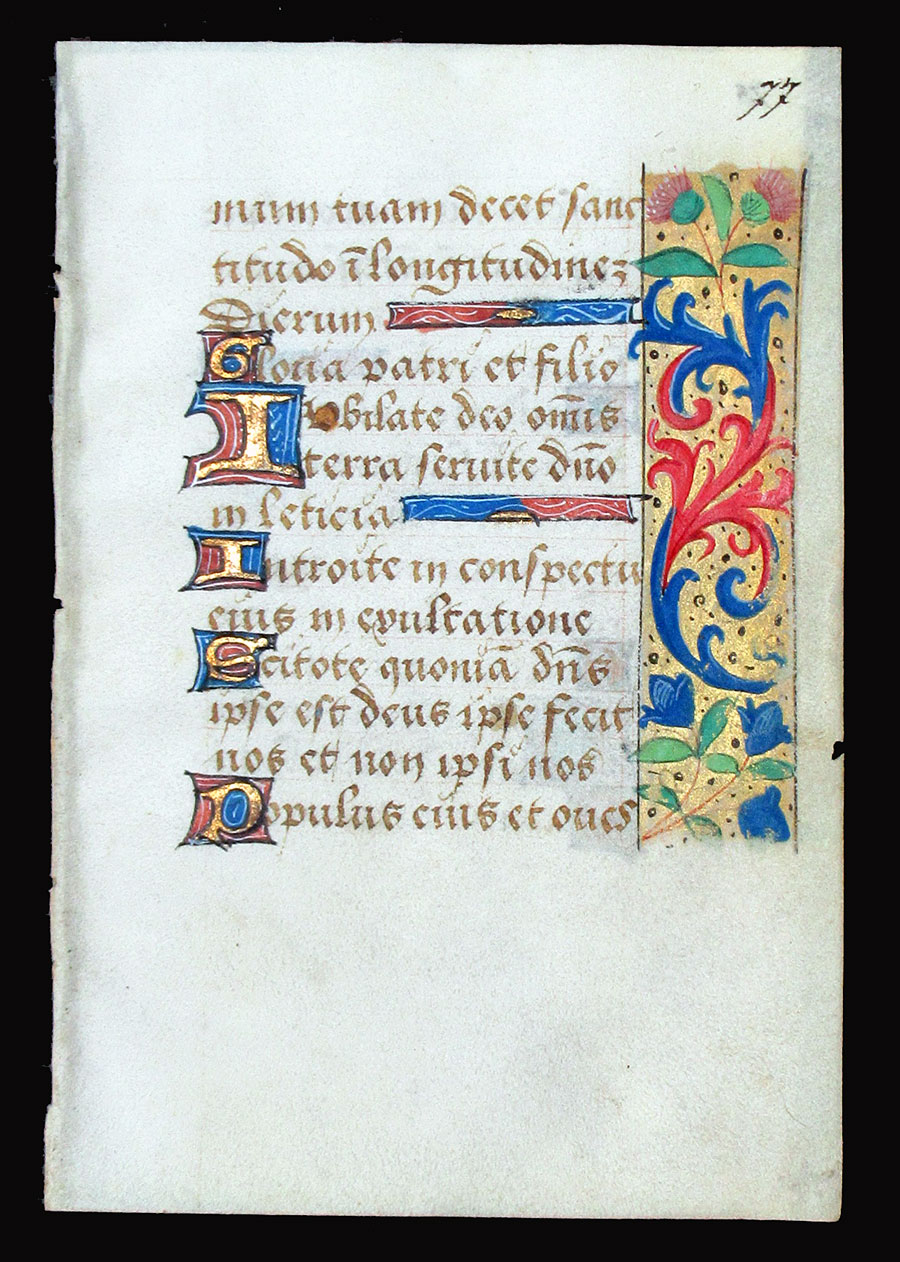 77
mum tuam decet sanc
titudo ī longitudinez
Dierum
Gloria patri et filio
Iubilate deo om̄is
terra seruite dn̄o
in leticia
Introite in conspectu
eius in exultatione
Scitote quoniā dn̄s
ipse est deus ipse fecit
nos et non ipsi nos
Populus eius et oues